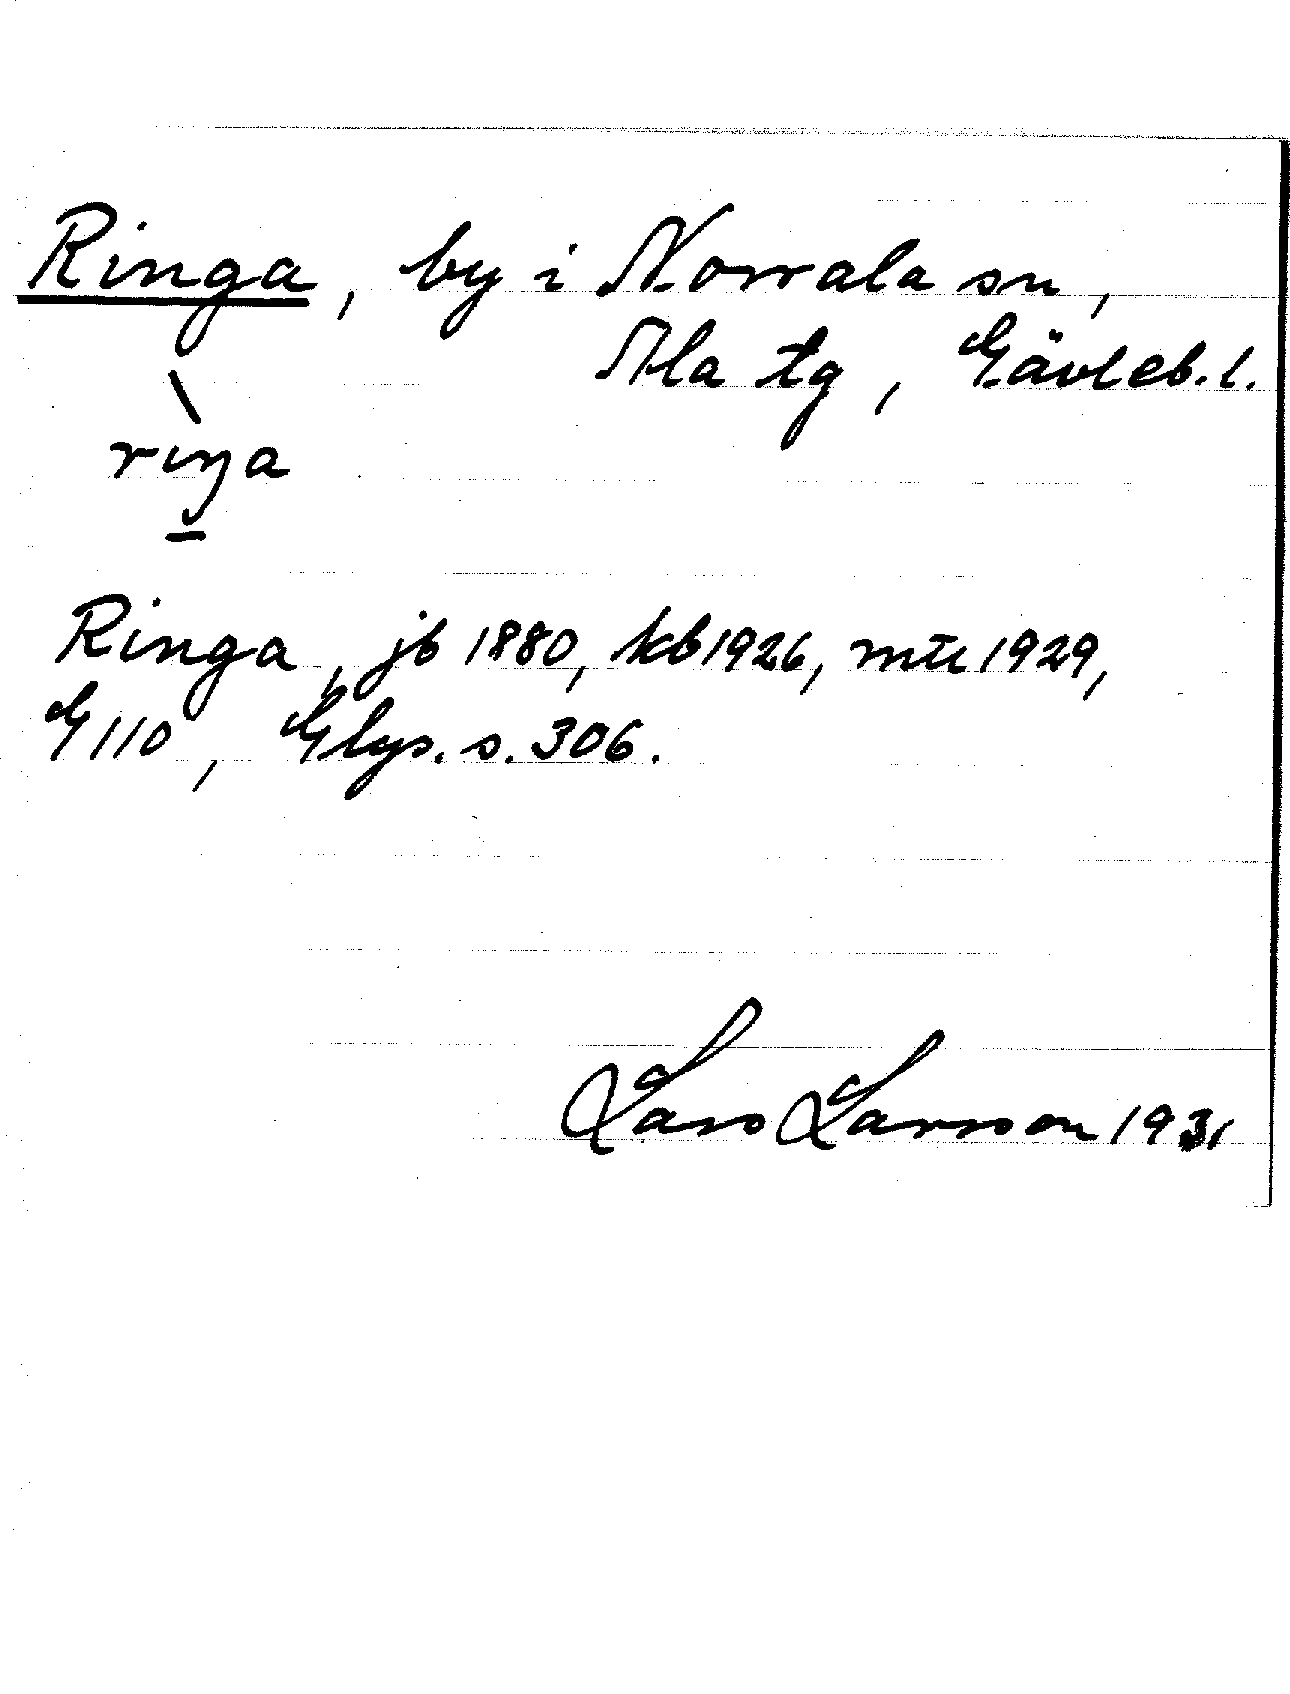 Ringa, by i Norrala sn,
Ala tg, Gävleb. l.
rıŋa
Ringa, jb 1880, kb 1926, mtl 1929,
G 110, Glys. s. 306.
Lars Larsson 1931